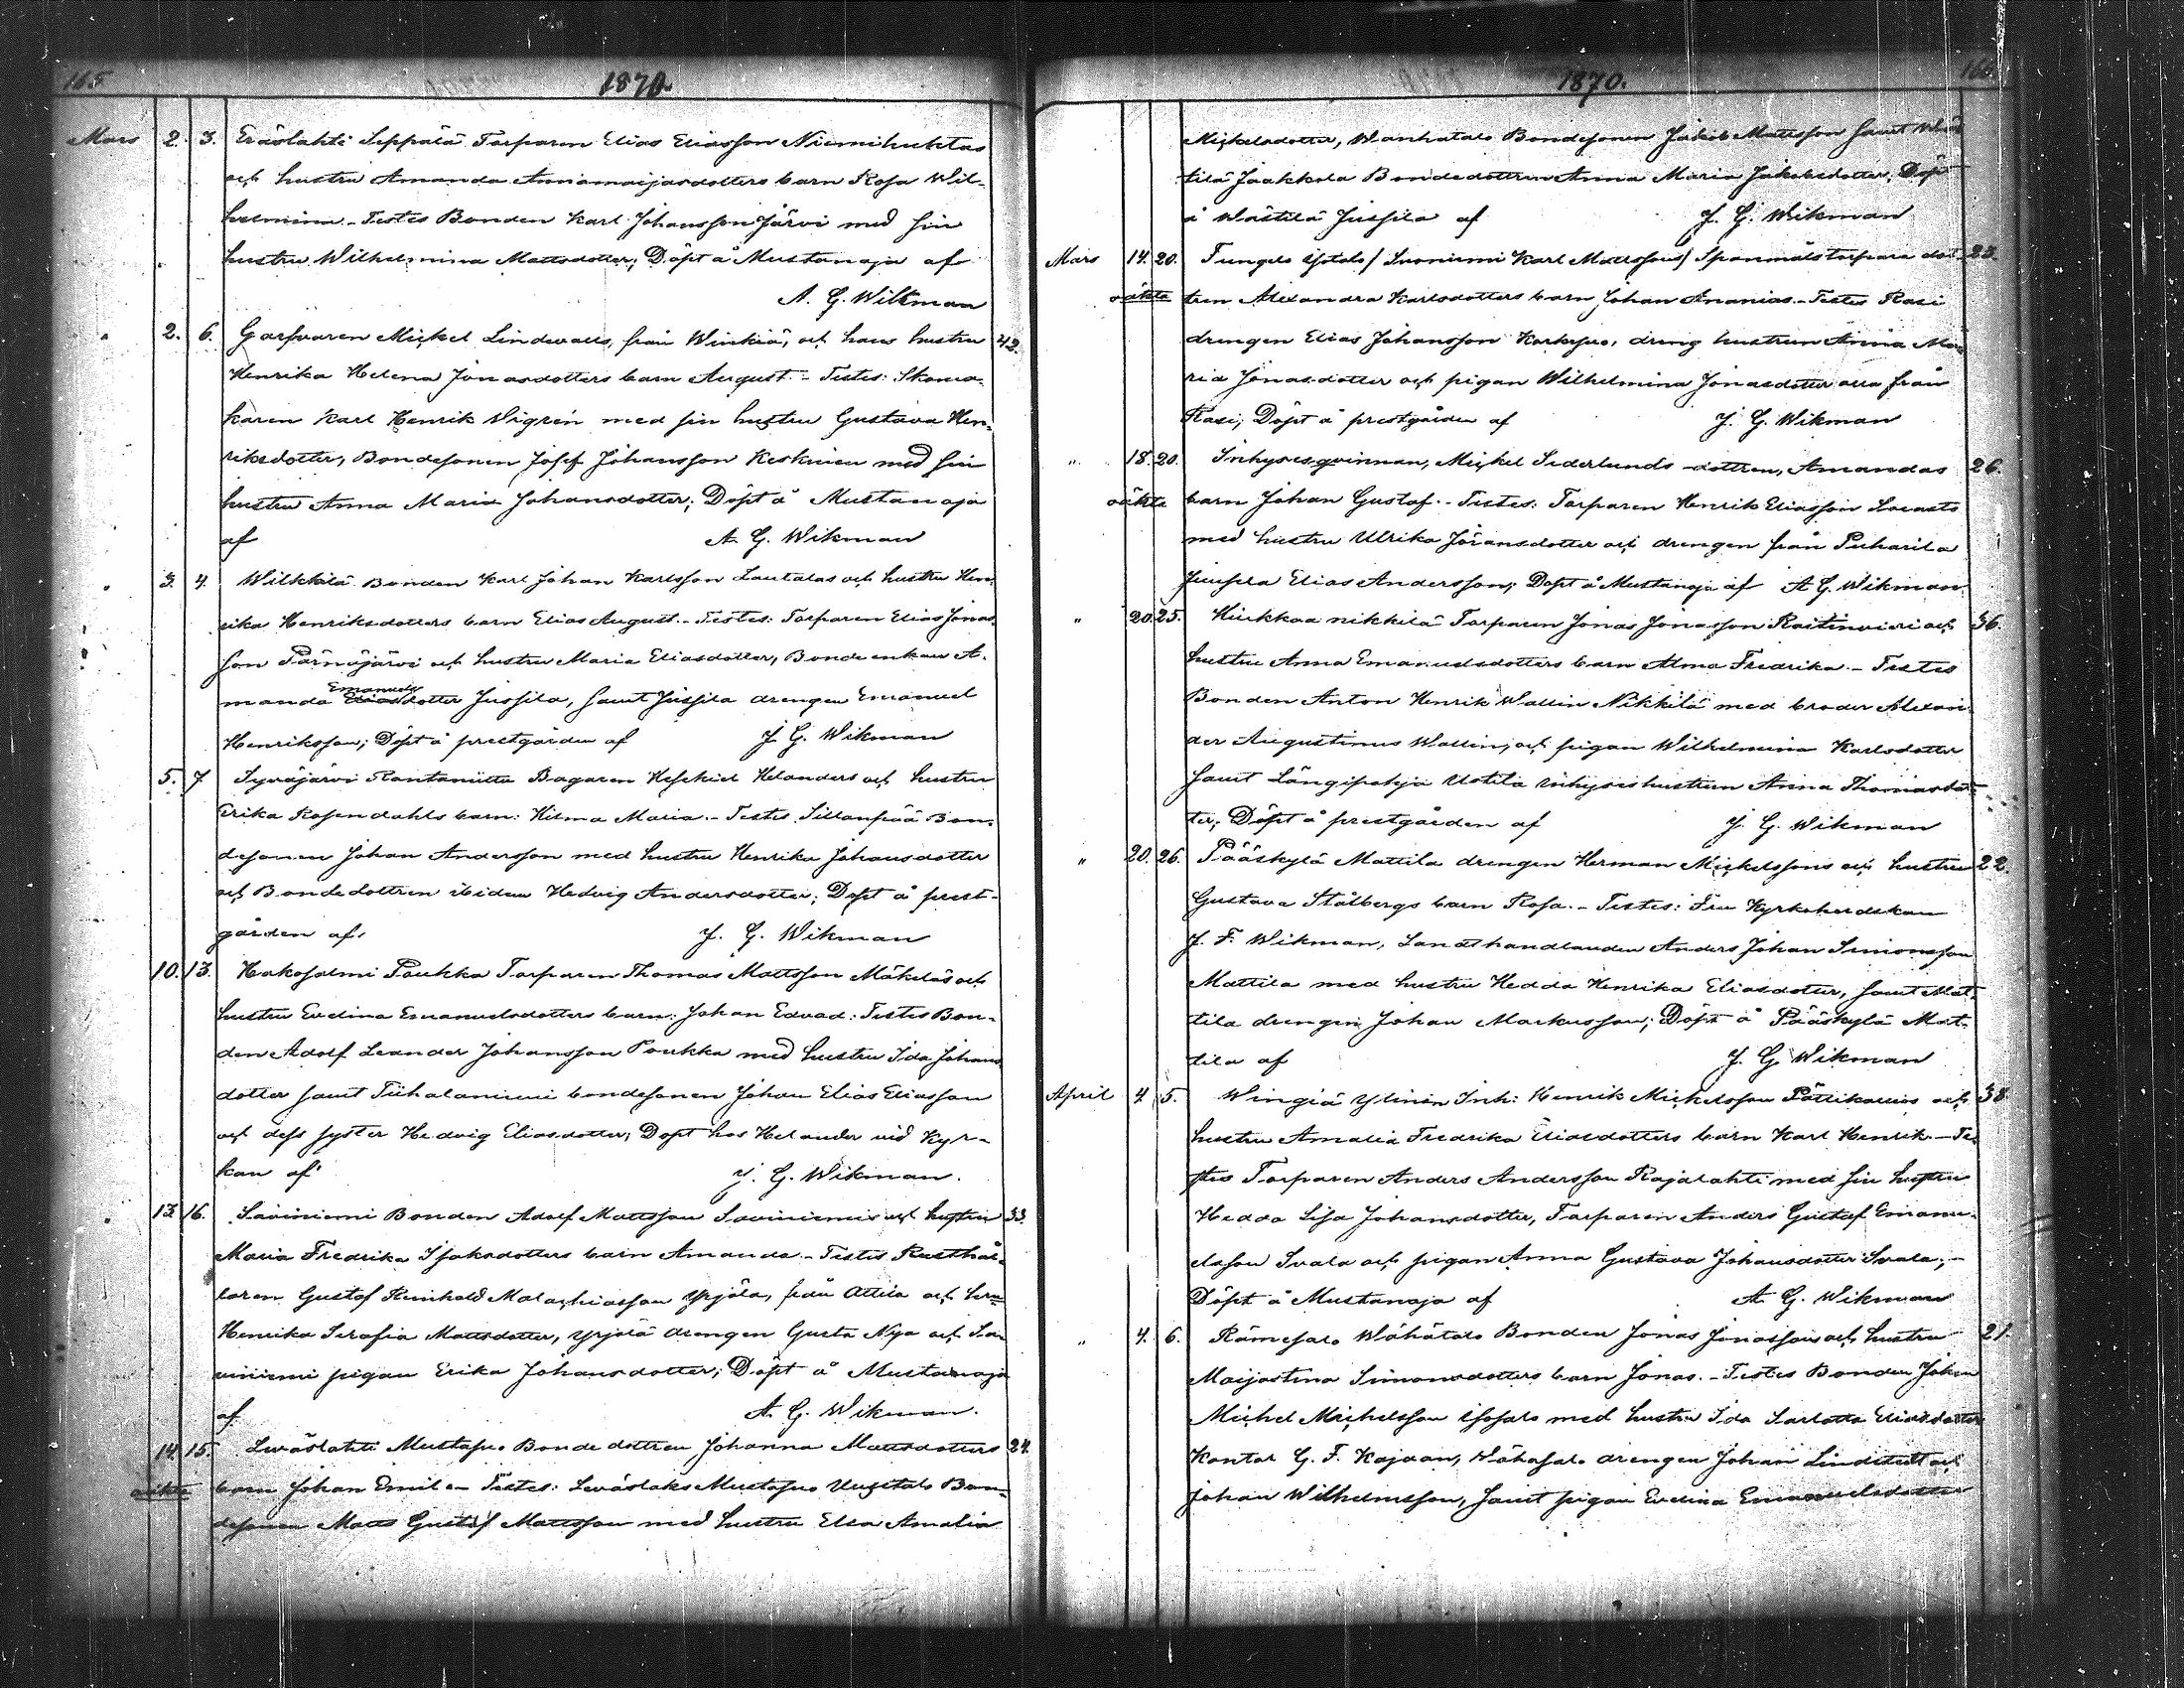 165.
1870.
Mars 2. 3. Eräslahti Seppälä Torparen Elias Eliasson Niemihuhtas
och hustru Amanda Annamaijasdotters barn Rosa Wil-
helmina. - Testes Bonden Karl Johansson Järvi med sin
hustru Wilhelmina Mattsdotter; Döpt å Mustanoja af
A. G. Wikman
" 2. 6. Garfvaren Mickel Lindwalls, från Winkiä, och hans hustru 42.
Henrika Helena Jonasdotters barn August. - Testes: Skoma-
karen Karl Henrik Wigrén med sin hustru Gustava Hen-
riksdotter, Bondesonen Josef Johansson Keskinen med sin
hustru Anna Maria Johansdotter; Döpt å Mustanoja
af A. G. Wikman
" 3. 4. Wilkkilä Bonden Karl Johan Karlsson Lautalas och hustru Hen-
rika Henriksdotters barn Elias August. - Testes: Torparen Elias Jonas-
son Pärnäjärvi och hustru Maria Eliasdotter, Bondeenkan A-
manda Emanuelsdotter Jussila, samt Jussila drengen Emanuel
Henriksson; Döpt å prestgården af J. G. Wikman
5. 7 Syväjärvi Rantaniitu Bagaren Heskiel Helanders och hustru
Erika Rosendahls barn: Hilma Maria. - Testes Sillanpää Bon-
desonen Johan Andersson med hustru Henrika Johansdotter
och Bondedottren ibidem Hedvig Andersdotter; Döpt å prest-
gården af. J. G. Wikman
10. 13. Hakosalmi Poukka Torparen Thomas Mattsson Mäkeläs och
hustru Evelina Emanuelsdotters barn: Johan Edvad: Testes Bon-
den Adolf Leander Johansson Poukka med hustru Ida Johans
dotter samt Tiihalaniemi bondesonen Johan Elias Eliasson
och dess syster Hedvig Eliasdotter; Döpt hos Helander vid kyr-
kan af J. G. Wikman.
13. 16. Saviniemi Bonden Adolf Mattsson Saviniemis och hustru 33.
Maria Fredrika Isaksdotters barn Amanda. - Testes Rusthål-
laren Gustaf Reinhold Malachiasson Yrjölä, från Attila och
Henrika Serafia Mattsdotter, Yrjölä drengen Gusta Nya och Sa-
viniemi pigan Erika Johansdotter; Döpt å Mustanoja
af A. G. Wikman.
14. 15. Leväslahti Mustasuo Bondedottren Johanna Mattsdotters 24.
oäkta barn Johan Emil. - Testes: Leväslaks Mustasuo Uusitalo Bon-
desonen Matts Gustaf Mattsson med hustru Elsa Amalia
166.
1870.
Mickelsdotter, Wanhatalo Bondesonen Jakob Mattsson samt Wäs
tilä Jaakkola Bondedottren Anna Maria Jakobsdotter; Döpt
å Wästilä Jussila af J. G. Wikman
Mars 14. 20. Tungelo Ijotalo/Suoniemi Karl Mattssons/Spanmålstorpare dot- 23.
oäkta tren Alexandra Karlsdotters barn Johan Ananias. - Testes Rasi
drengen Elias Johansson Korkesuo, dreng hustrun Anna Ma
ria Jonasdotter och pigan Wilhelmina Jonasdotter alla från
Rasi; Döpt å prestgården af J. G. Wikman
" 18. 20. Inhysesqvinnan, Mickel Sederlunds - dottren, Amandas 26.
oäkta barn Johan Gustaf. - Testes: Torparen Henrik Eliasson
med hustru Ulrika Göransdotter och drengen från Puharila
Jussila Elias Andersson; Döpt å Mustanoja af A. G. Wikman.
" 20. 25. Hirkkaa nikkilä Torparen Jonas Jonasson Rastinvieri och 36.
hustru Anna Emanuelsdotters barn Alma Fredrika. - Testes
Bonden Anton Henrik Wallin Nikkilä med broder Alexan-
der Augustinus Wallin, och pigan Wilhelmina Karlsdotter
samt Längipohja Uotila inhyseshustrun Anna Thomasdot-
ter; Döpt å prestgården af J. G. Wikman
" 20. 26. Pääskylä Mattila drengen Herman Mickelssons och hustru 22.
Gustava Stålbergs barn Rosa. - Testes: Fru Kyrkoherdskan
J. F. Wikman, Lanthandlanden Anders Johan Simonsson
Mattila med hustru Hedda Henrika Eliasdotter, samt Mat-
tila drengen Johan Markusson; Döpt å Pääskylä Mat-
tila af J. G. Wikman
April 4. 5. Wingiä Ylinen Inh: Henrik Mickelsson Pättikallios och 38
hustru Amalia Fredrika Eliasdotters barn Karl Henrik - Te-
stes Torparen Anders Andersson Rajalahti med sin hustru
Hedda Lisa Johansdotter, Torparen Anders Gustaf Emanu-
elsson Svala och pigan Anna Gustava Johansdotter Svala; -
Döpt å Mustanoja af A. G. Wikman
" 4. 6. Rämesalo Wähätalo Bonden Jonas Jonassons och hustru 21.
Maijastina Simonsdotters barn Jonas. - Testes Bonden Johan
Michel Michelsson Isosalo med hustru Ida Sarlotta Eliasdotter
Kantor G. F. Kajaan, Wähäsalo drengen Johan Lindstett och
Johan Wilhelmsson, samt pigan Evelina Emanuelsdotter